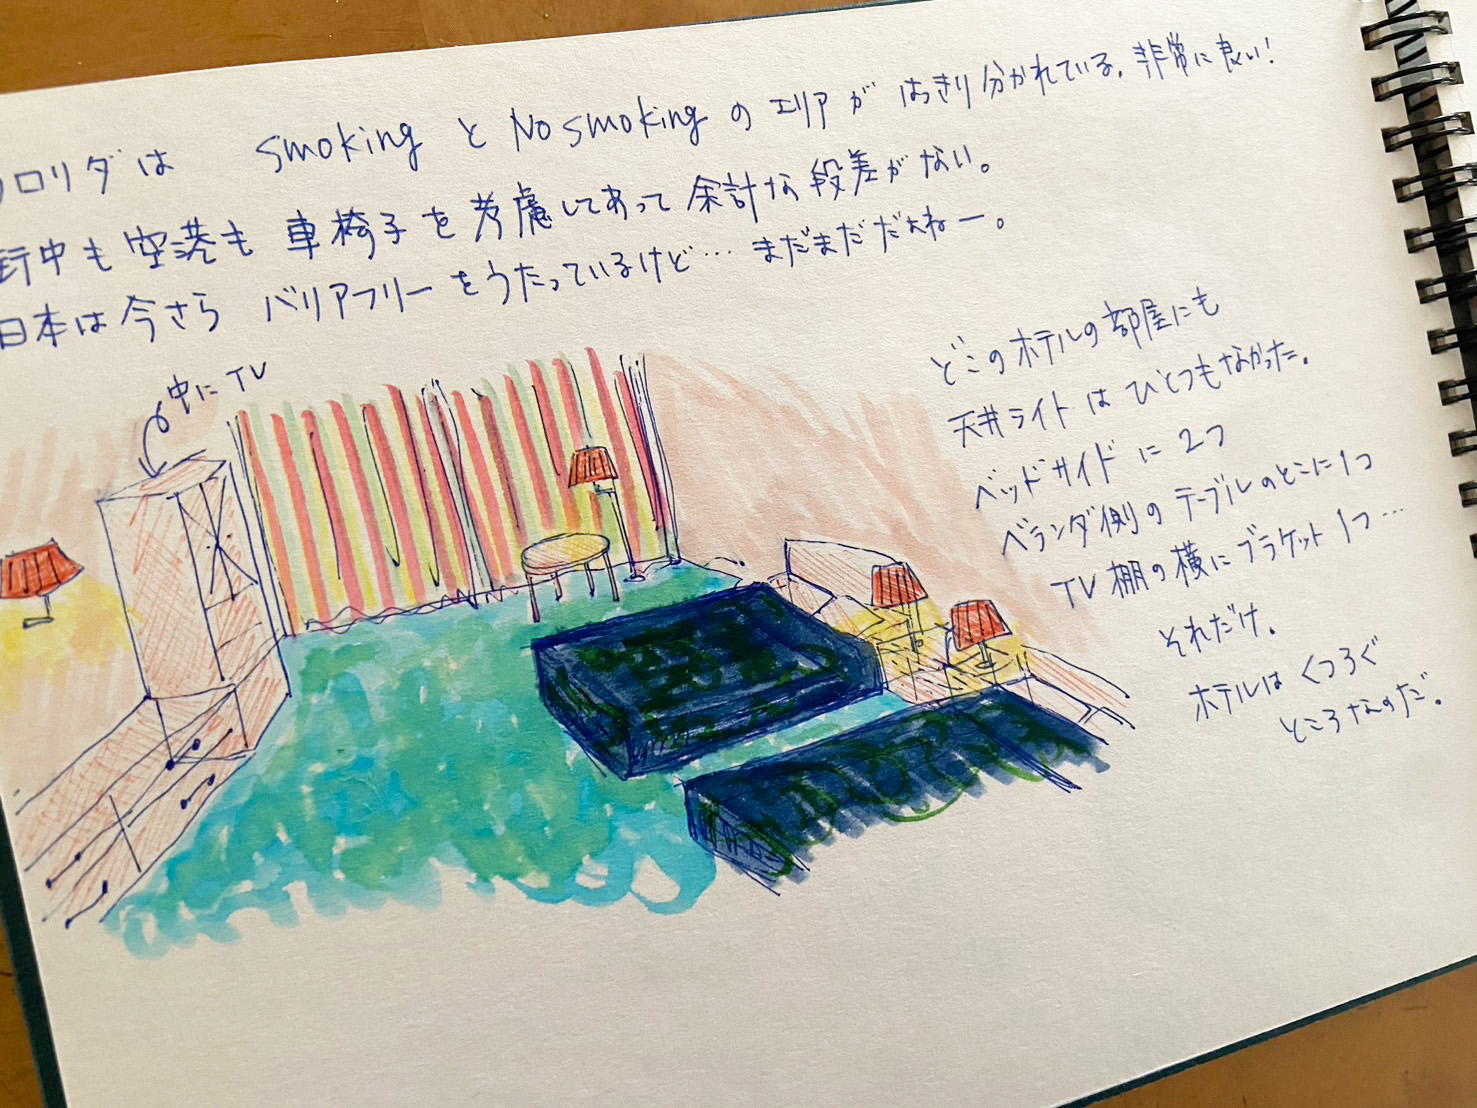 フロリダは smoking と No smoking の エリアが はっきり分かれている。非常に良い!
街中も空港も 車椅子を考慮してあって余計な段差がない。
日本は今さら バリアフリーをうたっているけど… まだまだだねー。
中にTV
どこのホテルの部屋にも
天井ライトはひとつもなかった。
ベッドサイドに2つ
ベランダ側のテーブルのとこに1つ
TV棚の横にブラケット1つ…
それだけ。
ホテルはくつろぐ
ところなのだ。